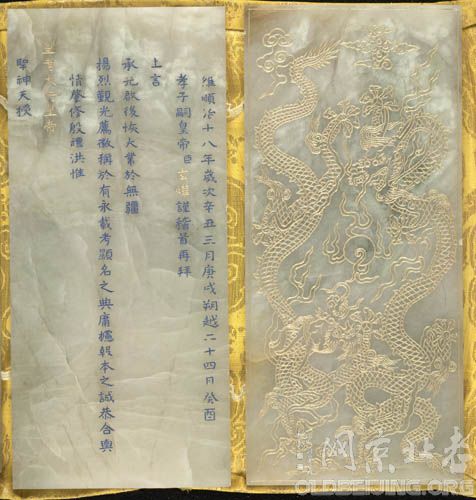 維順治十八年歲次辛丑三月庚戌朔越二十四日癸酉
孝子嗣皇帝臣玄燁謹稽首再拜
上言
承先啟後恢大業於無疆
揚烈觀光薦徽稱於有永載考顯名之典庸攄報本之誠恭合輿
情肇修殷禮洪惟
皇考大行皇帝
神天授
网京北老
OLDBEIJING.ORG